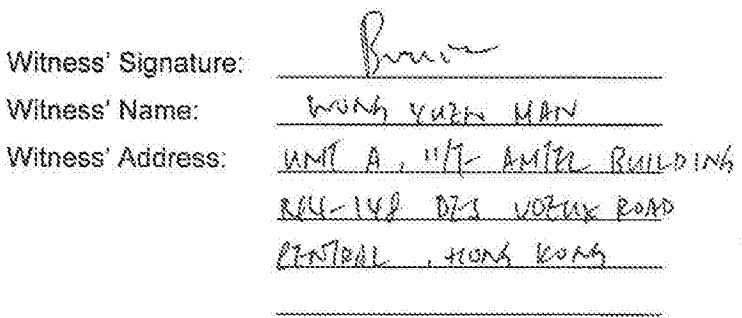 Witness' Signature:
Witness' Name: WONG YUEN MAN
Witness' Address: UNIT A, 11/F AMTEL BUILDING
148 DES VOEUX ROAD
CENTRAL, HONG KONG